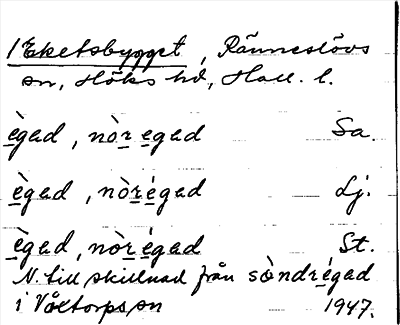 /Eketsbygget, Ränneslövs
sn, Höks hd, Hall. l.
ègad, nòr egad Sa.
ègad, nòrégad Lj.
ègad, nòrégad St.
N. till skillnad från sòndrégad
i Våxtorps sn 1947.